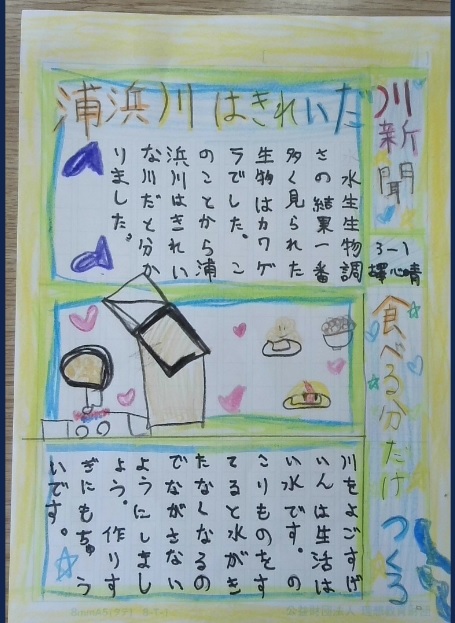 川新聞
3-1
浦浜川はきれいだ
水生生物調
さの結果一番
多く見られた
生物はカワゲ
ラでした。こ
のことから浦
浜川はきれい
な川だと分か
りました。
食べる分だけ
つくる。
川をよごすげ
いんは生活は
い水です。の
こりものをす
てると水がき
たなくなるの
でながさない
ようにしまし
ょう。作りす
ぎにもちゅう
いです。
公益財団法人